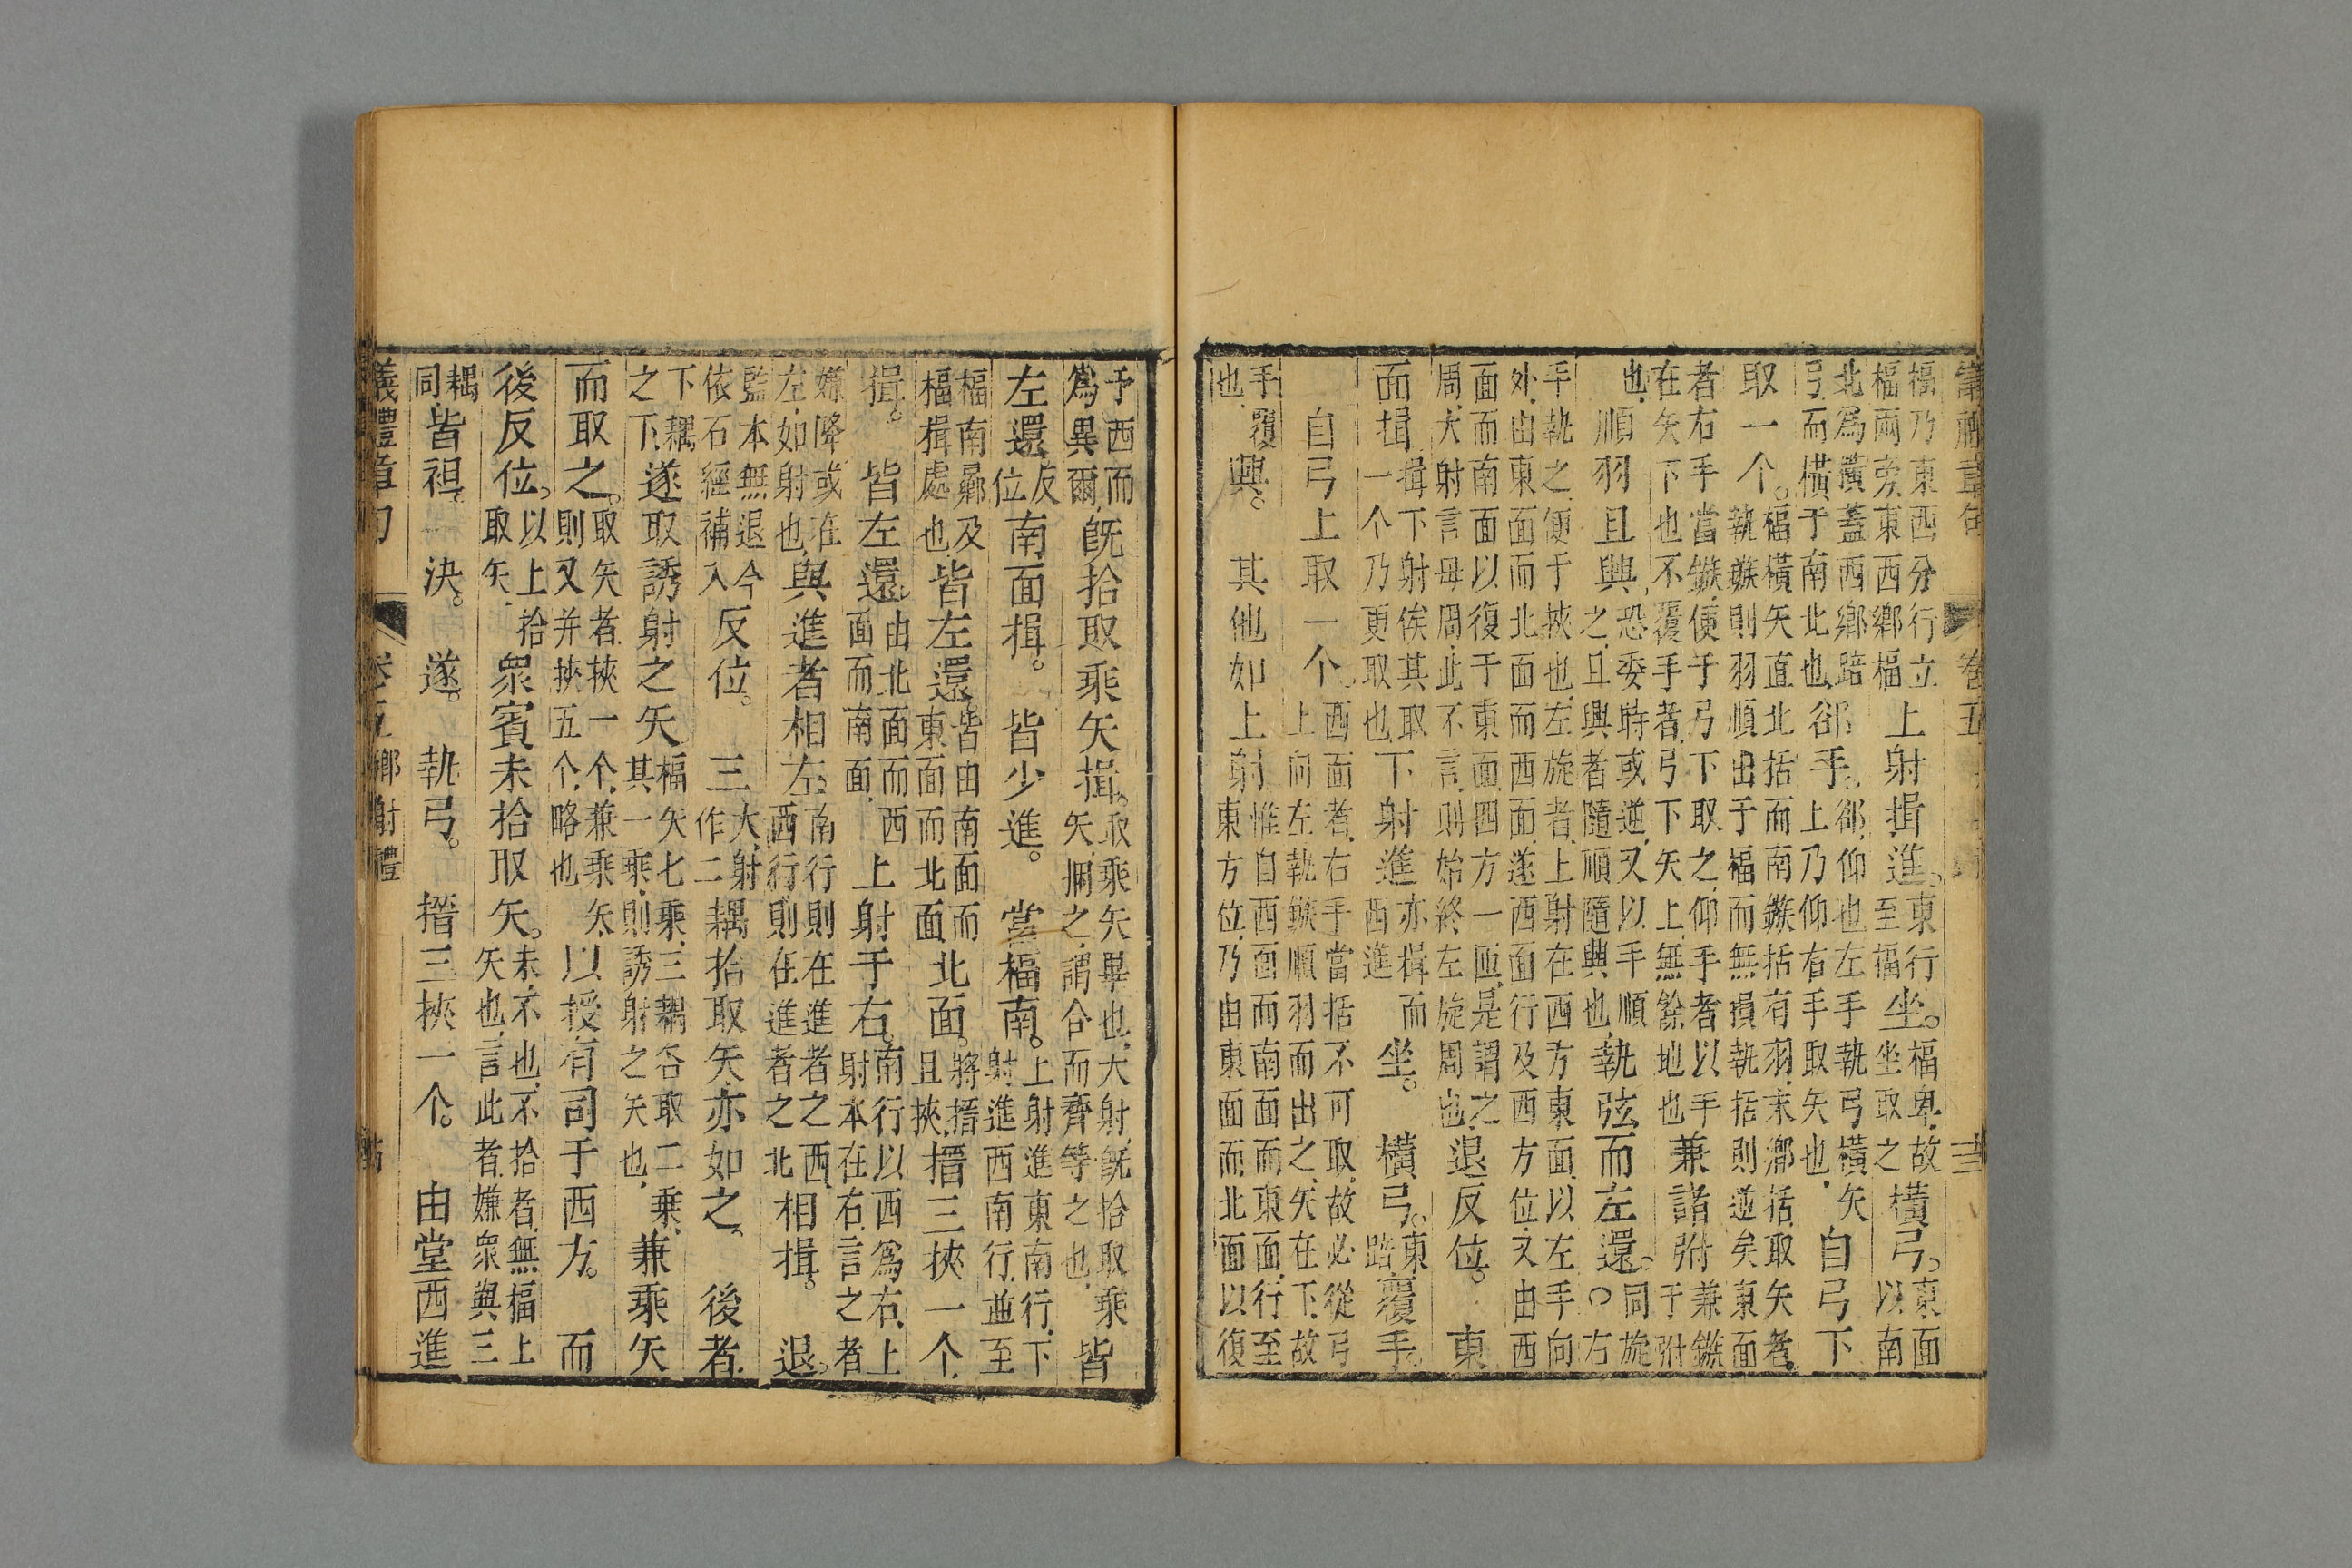 章句 卷五 十三
楅乃東西分行立楅兩旁東西鄉楅上射揖進。東行至楅坐。楅卑故坐取之橫弓。東面以南
北為橫蓋西鄉踣弓而橫于南北也郤手。郤仰也左手執弓橫矢上乃仰右手取矢也自弓下
取一个。楅橫矢直北括而南鏃括有羽末鄉括取矢者執鏃則羽順出于楅而無損執括則逆矣東面
者右手當鏃便于弓下取之仰手者以手在矢下也不覆手者弓下矢上無餘地也兼諸弣兼鏃于弣
也順羽且興恐委時或逆又以手順之且興者隨順隨興也執弦而左還。同旋○右
手執之便于挾也左旋者上射在西方東面以左手向外由東面而北面而西面遂西面行及西方位又由西
面而南面以復于東面四方一匝是謂之周大射言毋周此不言則始終左旋周也退反位。東
面揖揖下射俟其取一个乃更取也下射進亦揖而西進坐。橫弓。東踣覆手。
自弓上取一个西面者右手當括不可取故必從弓上向左執鏃順羽而出之矢在下故
手覆也興。其他如上射惟自西面而南面而東面行至東方位乃由東面而北面以復
于西而為異爾既拾取乘矢揖。取乘矢畢也大射既拾取乘矢捆之謂合而齊等之也皆
左還反位南面揖。皆少進。當楅南。上射進東南行下射進西南行並至
楅南鄉及楅揖處也皆左還皆由南面而東面而北面北面。將搢且挾搢三挾一个
揖。皆左還由北面而西面而南面上射于右。南行以西為右上射本在右言之者
嫌降或在左如射也與進者相左南行則在進者之西西行則在進者之北相揖。退
監本無退今依石經補入反位。三大射作二耦拾取矢亦如之。後者
下耦之下遂取誘射之矢楅矢七乘三耦各取二乘其一乘則誘射之矢也兼乘矢
而取之。取矢者挾一个兼乘矢則又并挾五个略也以授有司于西方。而
後反位。以上拾取矢眾賓未拾取矢。未不也不拾者無楅上矢也言此者嫌眾與三
耦同皆袒。決。遂。執弓。搢三挾一个。由堂西進
儀禮章句 卷五鄉射禮